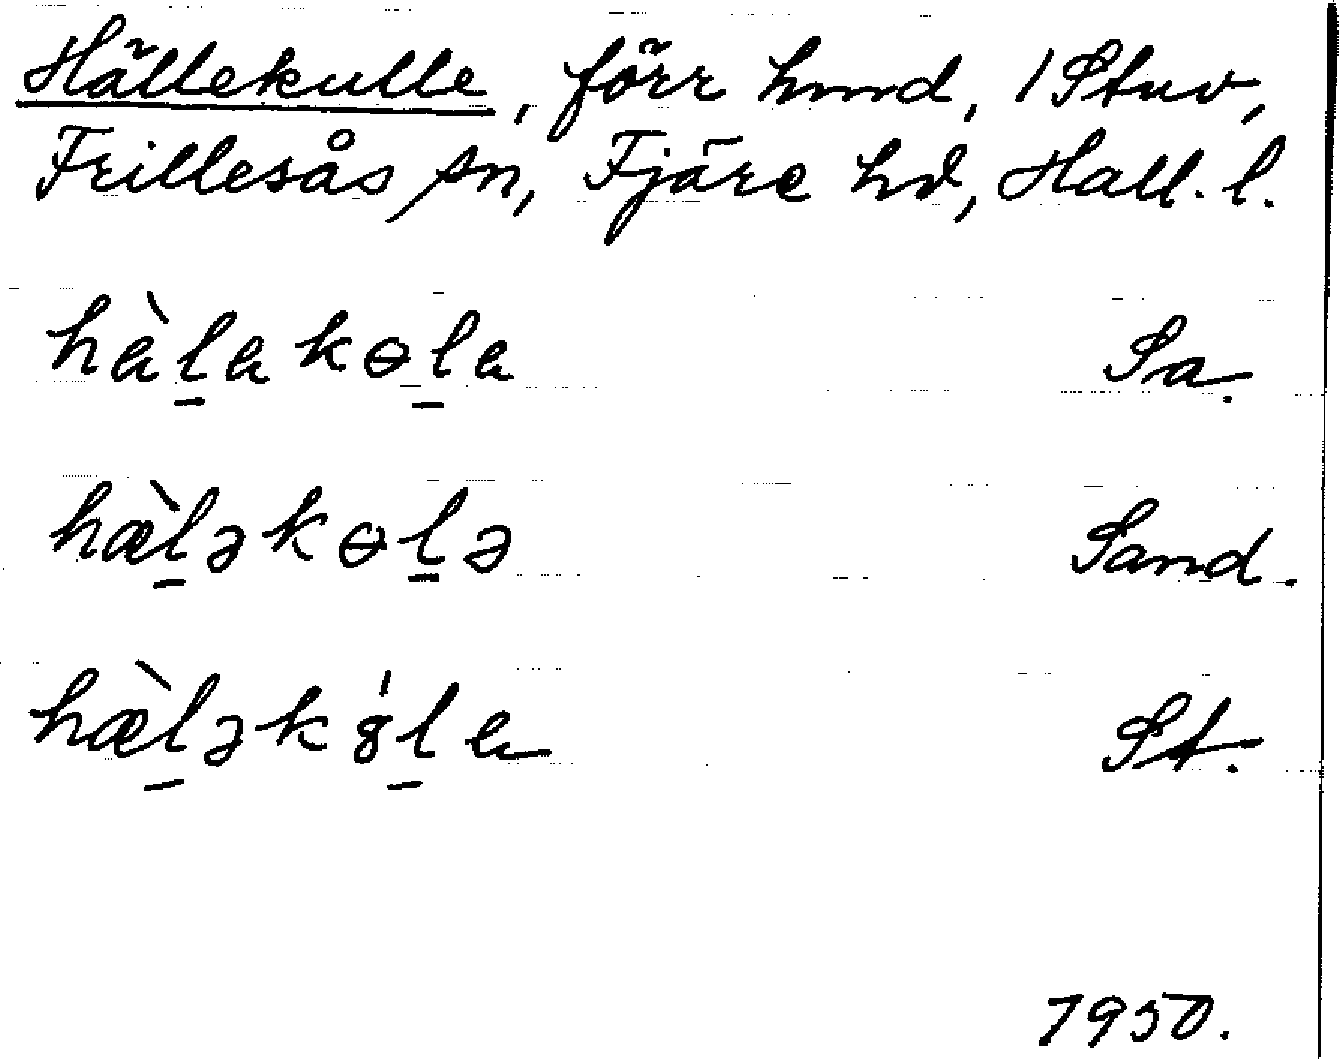 Hällekulle, förr hmnd, 1 Stuv,
Frillesås sn, Fjäre hd, Hall. l.
hàl̠akɵl̠a Sa.
hæ̀l̠əkɵl̠ə Sand.
hæ̀l̠əkȣ́l̠a St.
1950.